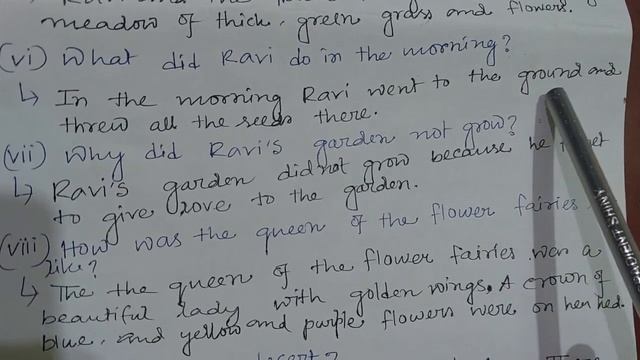 meadow of thick, green grass and flowers.
(vi) What did Ravi do in the morning?
↳ In the morning Ravi went to the ground and
threw all the seeds there.
(vii) Why did Ravi's garden not grow?
↳ Ravi's garden did not grow because he
to give love to the garden.
(viii) How was the queen of the flower fairies
like?
↳ The the queen of the flower fairies wen a
beautiful lady with golden wings. A crown of
blue, and yellow and purple flowers were on hen hed.
SHINY